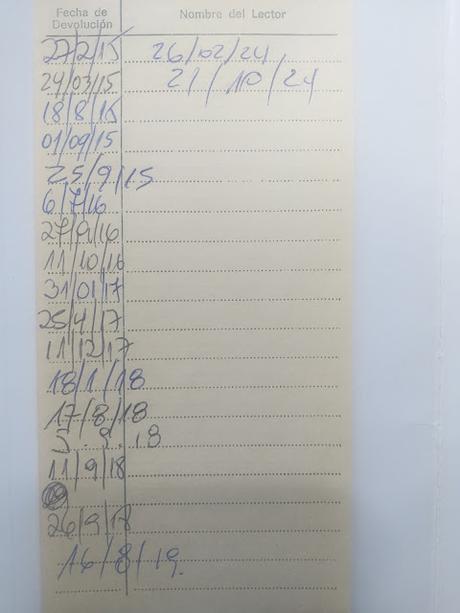 Fecha de Devolución Nombre del Lector
27/2/15 26/02/24
24/03/15 21/10/24
18/8/15
01/09/15
25/9/15
6/7/16
27/9/16
11/10/16
31/01/17
25/4/17
11/12/17
18/1/18
17/8/18
11/9/18
26/9/18
16/8/19.